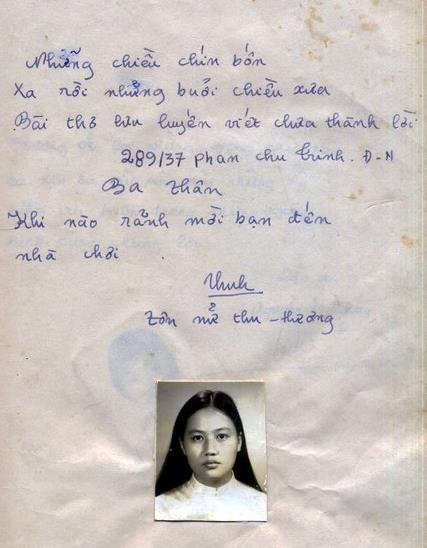 Những chiều chín bốn
Xa rồi những buổi chiều xưa
Bài thơ lưu luyến viết chưa thành lời
289/37 phan chu trinh. Đ-N
Ba Thân
Khi nào rảnh mời bạn đến
nhà chơi .
Tôn nữ thu - hương